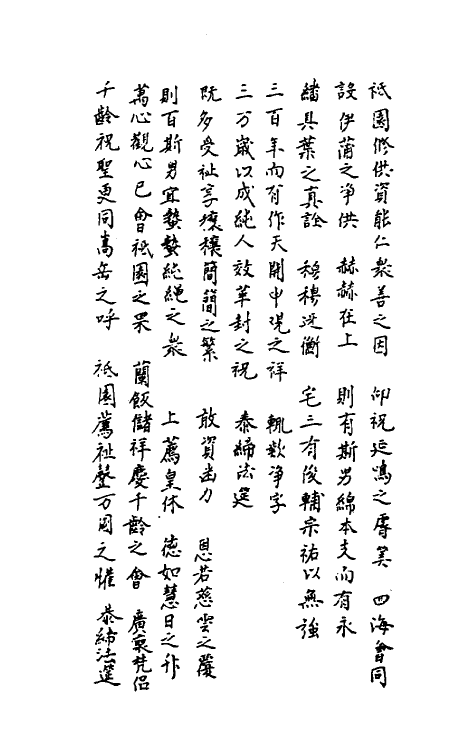 祇園修供資能仁衆善之因　仰祝延鴻之壽筭　四海會同
設伊蒲之净供　赫赫在上　則有斯男綿本支而有永
繙具葉之真詮　穆穆迓衡　宅三有俊輔宗祐以無強
三百年而有作天開中現之祥　輒歎净字
三万歲以成純人效華封之祝　恭締法筵
既多受祉享穰穰簡簡之繁　敢資出力　恩若慈雲之覆
則百斯男宜蟄蟄繩繩之衆　上薦皇休　德如慧日之升
萬心觀心已會祇園之果　蘭飯儲祥慶千齡之會　廣裒梵侣
千齡祝聖更同嵩岳之呼　祇園薦祉罄万國之懽　恭締法筵